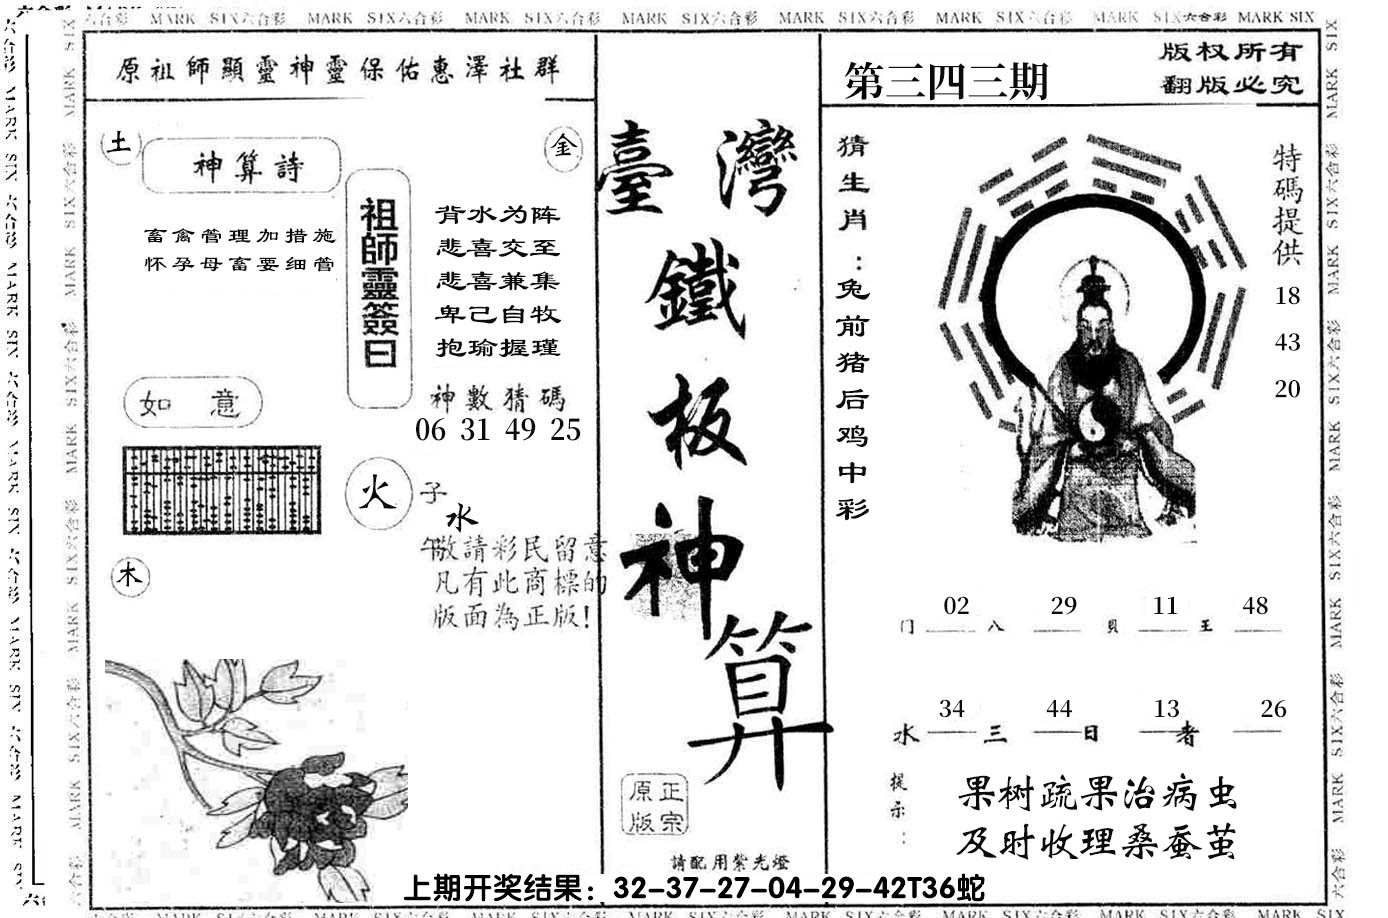 六合彩 MARK SIX六合彩 MARK SIX六合彩 MARK SIX六合彩 MARK SIX六合彩 MARK SIX六合彩 MARK SIX六合彩 MARK SIX六合彩 MARK SIX
原祖師顯靈神靈保佑惠澤社群
土
神算詩
金
畜禽管理加措施
怀孕母畜要细管
祖師靈簽曰
背水为阵
悲喜交至
悲喜兼集
卑己自牧
抱瑜握瑾
如意
神數猜碼
06 31 49 25
火
子
水
午
木
敬請彩民留意
凡有此商標的
版面為正版!
臺灣
鐵
板
神
算
正宗
原版
請配用紫光燈
第三四三期
版权所有
翻版必究
猜生肖:兔前猪后鸡中彩
特碼提供
18
43
20
02 29 11 48
门 八 貝 王
34 44 13 26
水 三 日 者
提示:
果树疏果治病虫
及时收理桑蚕茧
上期开奖结果：32-37-27-04-29-42T36蛇